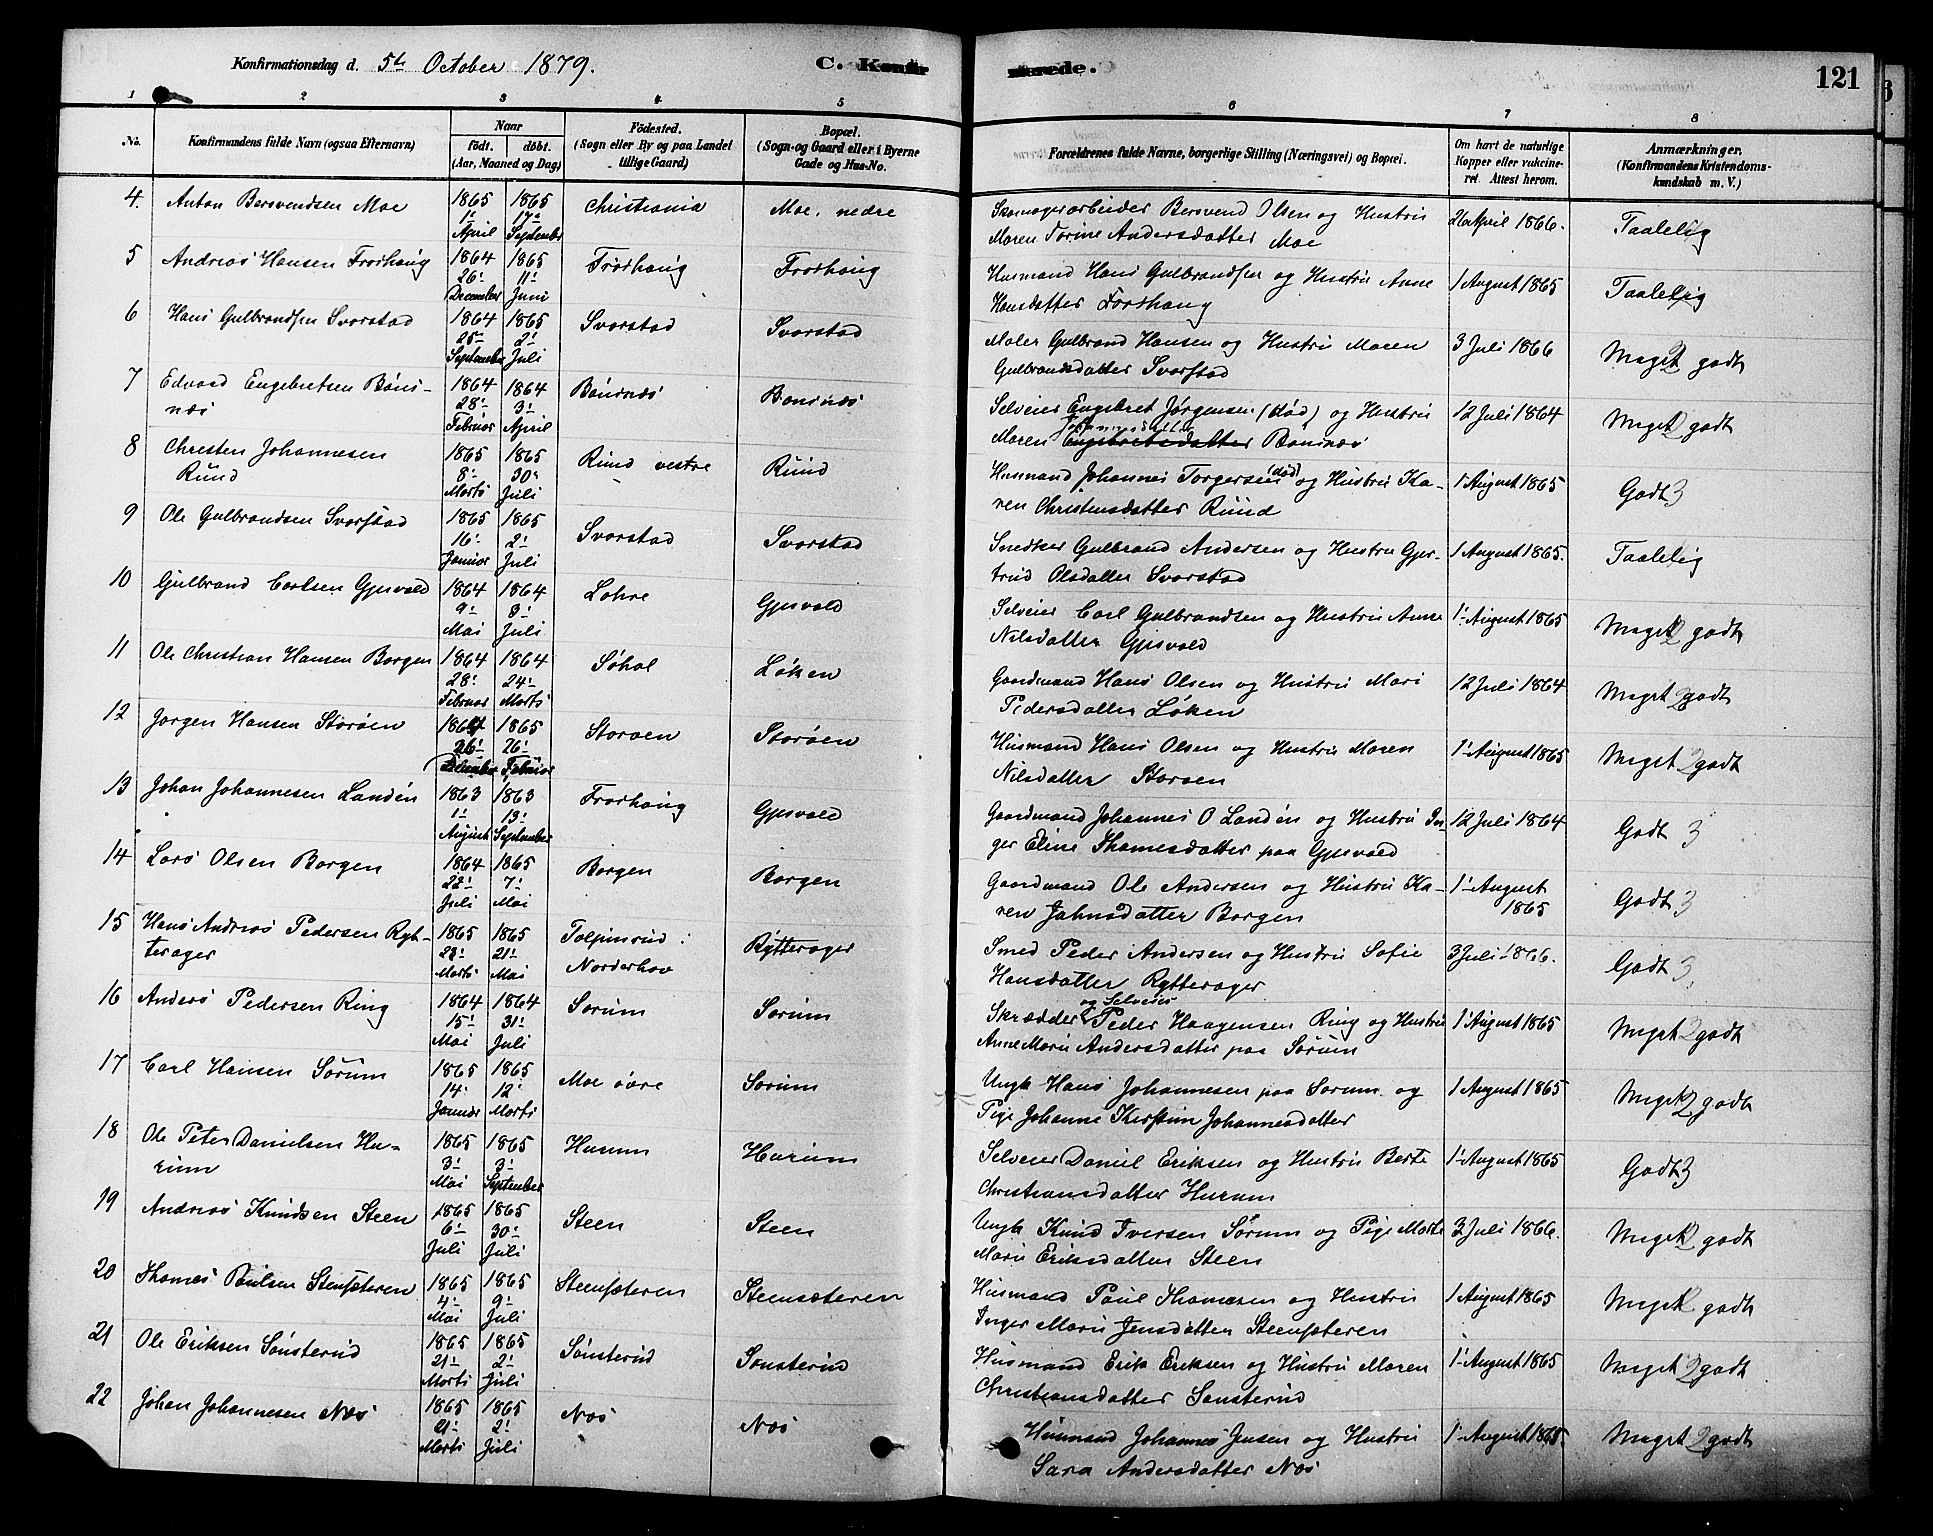 Konfirmationsdag d. 5te October 1879.
C. Konfir
merede.
121
1 2 3 4 5 6 7 8
No.
Konfirmandens fulde Navn (ogsaa Efternavn)
Naar
födt. döbt.
(Aar, Maaned og Dag)
Födested.
(Sogn eller By og paa Landet
tillige Gaard)
Bopæl.
(Sogn- og Gaard eller i Byerne
Gade og Hus-No.
Forældrenes fulde Navne, borgerlige Stilling (Næringsvei) og Bopæl.
Om havt de naturlige
Kopper eller vakcine-
ret. Attest herom.
Anmærkninger.
(Konfirmandens Kristendoms-
kundskab m. V.)
4. Anton Bersvendsen Moe 1865 1 April 1865 17 September Christiania Moe, nedre
Skomagerarbeider Bersvend Olsen og Hustru
Maren Torine Andersdatter Moe
26 April 1866. Taalelig
5 Andreas Hansen Frorhaug 1864 26 December 1865 11 Juni Frorhaug Frorhaug
Husmand Hans Gulbrandsen og Hustru Anne
Hansdatter Frorhaug
1 August 1865 Taalelig
6 Hans Gulbrandsen Svarstad 1864 25 September 1865 2 Juli Svarstad Svarstad
Maler Gulbrand Hansen og Hustru Maren
Gulbrandsdatter Svarstad
3 Juli 1866 Meget 2 godt
7 Edvard Engebretsen Böns-
næs 1864 28 Februar 1864 3 April Bönsnæs Bønsnæs
Selveier Engebret Jørgensen (död) og Hustru
Maren Engebretsdatter Bønsnæs
12 Juli 1864 Meget 2 godt
8 Christen Johannesen
Rud 1865 8 Marts 1865 30 Juli Rud vestre Rud
Husmand Johannes Torgersen (död) og Hustru Ka-
ren Christensdatter Rud
1 August 1865 Godt 3
9 Ole Gulbrandsen Svarstad 1865 16 Januar 1865 2 Juli Svarstad Svarstad
Snedker Gulbrand Andersen og Hustru Gjer-
trud Olsdatter Svarstad
1 August 1865. Taalelig
10 Gulbrand Carlsen Gjesvold 1864 9 Mai 1864 3 Juli Lohre Gjesvold
Selveier Carl Gulbrandsen og Hustru Anne
Nilsdatter Gjesvold
1 August 1865 Meget 2 godt
11 Ole Christian Hansen Borgen 1864 28 Februar 1864 24 Marts Søhol Løken
Gaardmand Hans Olsen og Hustru Mari
Pedersdatter Løken
12 Juli 1864 Meget 2 godt
12 Jørgen Hansen Storøen 1864 26 December 1865 26 Februar Storøen Storøen
Husmand Hans Olsen og Hustru Maren
Nilsdatter Storøen
1 August 1865 Meget 2 godt
13 Johan Johannesen Landén 1863 1 August 1863 13 September Frorhaug Gjesvold
Gaardmand Johannes O Landén og Hustru In-
ger Eline Thomesdatter paa Gjesvold
12 Juli 1864 Godt 3
14 Lars Olsen Borgen 1864 22 Juli 1865 7 Mai Borgen Borgen
Gaardmand Ole Andersen og Hustru Ka-
ren Jahnsdatter Borgen
1 August
1865 Godt 3
15 Hans Andreas Pedersen Ryt-
terager 1865 23 Marts 1865 21 Mai Tolpinrud i
Norderhov Rytterager
Smed Peder Andersen og Hustru Sofie
Hansdatter Rytterager
3 Juli 1866. Godt 3.
16 Anders Pedersen Ring 1864 15 Mai 1864 31 Juli Sørum Sørum
og Selveier
Skrædder Peder Haagensen Ring og Hustru
Anne Marie Andersdatter paa Sørum
1 August 1865 Meget 2 godt
17 Carl Hansen Sørum 1865 14 Januar 1865 12 Marts Moe övre Sørum
Ungk Hans Johannesen paa Sørum og
Pige Johanne Kirstine Johannesdatter
1 August 1865 Meget 2 godt
18 Ole Peter Danielsen Hu-
rum 1865 3 Mai 1865 3 September Hurum Hurum
Selveier Daniel Eriksen og Hustru Berte
Christiansdatter Hurum
1 August 1865 Godt 3
19 Andreas Knudsen Steen 1865 6 Juli 1865 30 Juli Steen Steen
Ungk Knud Iversen Sørum og Pige Marte
Marie Eriksdatter Steen
3 Juli 1866. Meget 2 godt
20 Thomes Paulsen Stensæteren 1865 4 Mai 1865 9 Juli Steensæteren Steensæteren
Husmand Paul Thomesen og Hustru
Inger Marie Jensdatter Steensæteren
1 August 1865 Meget 2 godt
21 Ole Eriksen Sönsterud 1865 21 Marts 1865 2 Juli Sönsterud Sønsterud
Husmand Erik Eriksen og Hustru Maren
Christiansdatter Sønsterud
1 August 1865 Meget 2 godt
22 Johan Johannesen Næs 1865 21 Marts 1865 2 Juli Næs Næs
Husmand Johannes Jensen og Hustru
Sara Andersdatter Næs
1 August 1865. Meget 2 godt